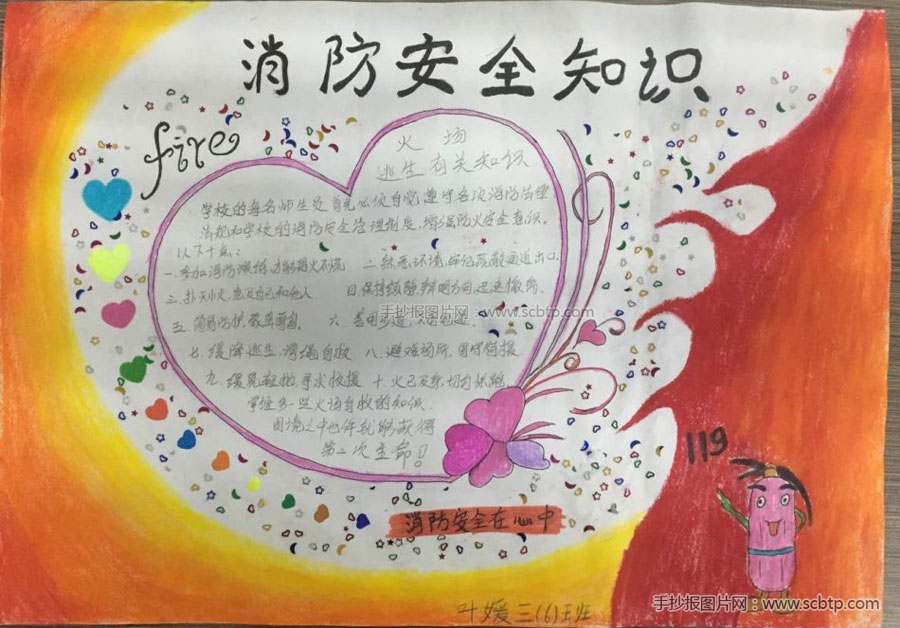 消防安全知识
fire
火场
逃生有关知识
学校的每名师生员首先必须自觉遵守各项消防法律
法规和学校的消防安全管理制度,增强防火安全意识。
以下十点:
一.参加消防演练,才能遇火不慌 二.熟悉环境,牢记疏散通道出口.
三.扑灭小火,惠及自己和他人 四.保持镇静,辨明方向,迅速撤离.
手抄报图片网:www.scbtp.com
五.简易防护,蒙鼻匍匐. 六.善用步道,
七.缓降逃生,滑绳自救 八.避难场所,固守待援
九.缓晃轻抛,寻求救援 十.火已及身,切勿惊跑
学住多一些火误自救的知识.
困境之中也许就能获得
第二次生命!
119
消防安全在心中
叶媛三(6)班
手抄报图片网:www.scbtp.com